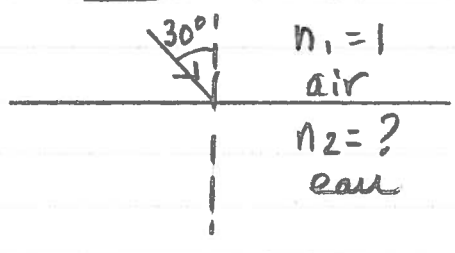 30°
n₁ = 1
air
n₂ = ?
eau